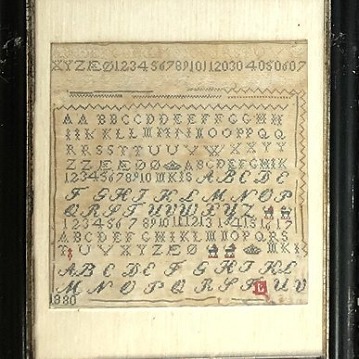 XYZÆØ0123456789101112030405060 7
AABBCCDDEEFFGGHH
IIKKLLMMNNOOPPQQ
RRSSTTUUVVXXYY
ZZÆÆØØABCDEFGHIK
12345678910MKIS ABCDE
FGHIKLMNOP
QRSTUVWXYZ
1234567891011121314151617
ABCDEFGHIKLMNOPQRS
TUVXYZÆØ MKI
ABCDEFGHIKL
MNOPQRSTUV
1880